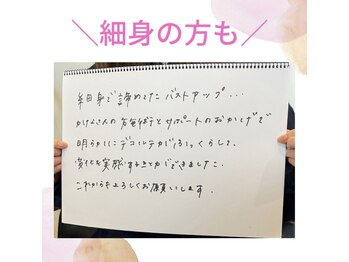 ＼細身の方も／
細身で諦めてたバストアップ...
の施術とサポートのおかげで
明らかにデコルテがふっくらして、
変化を実感することができました。
これからもよろしくお願いします。